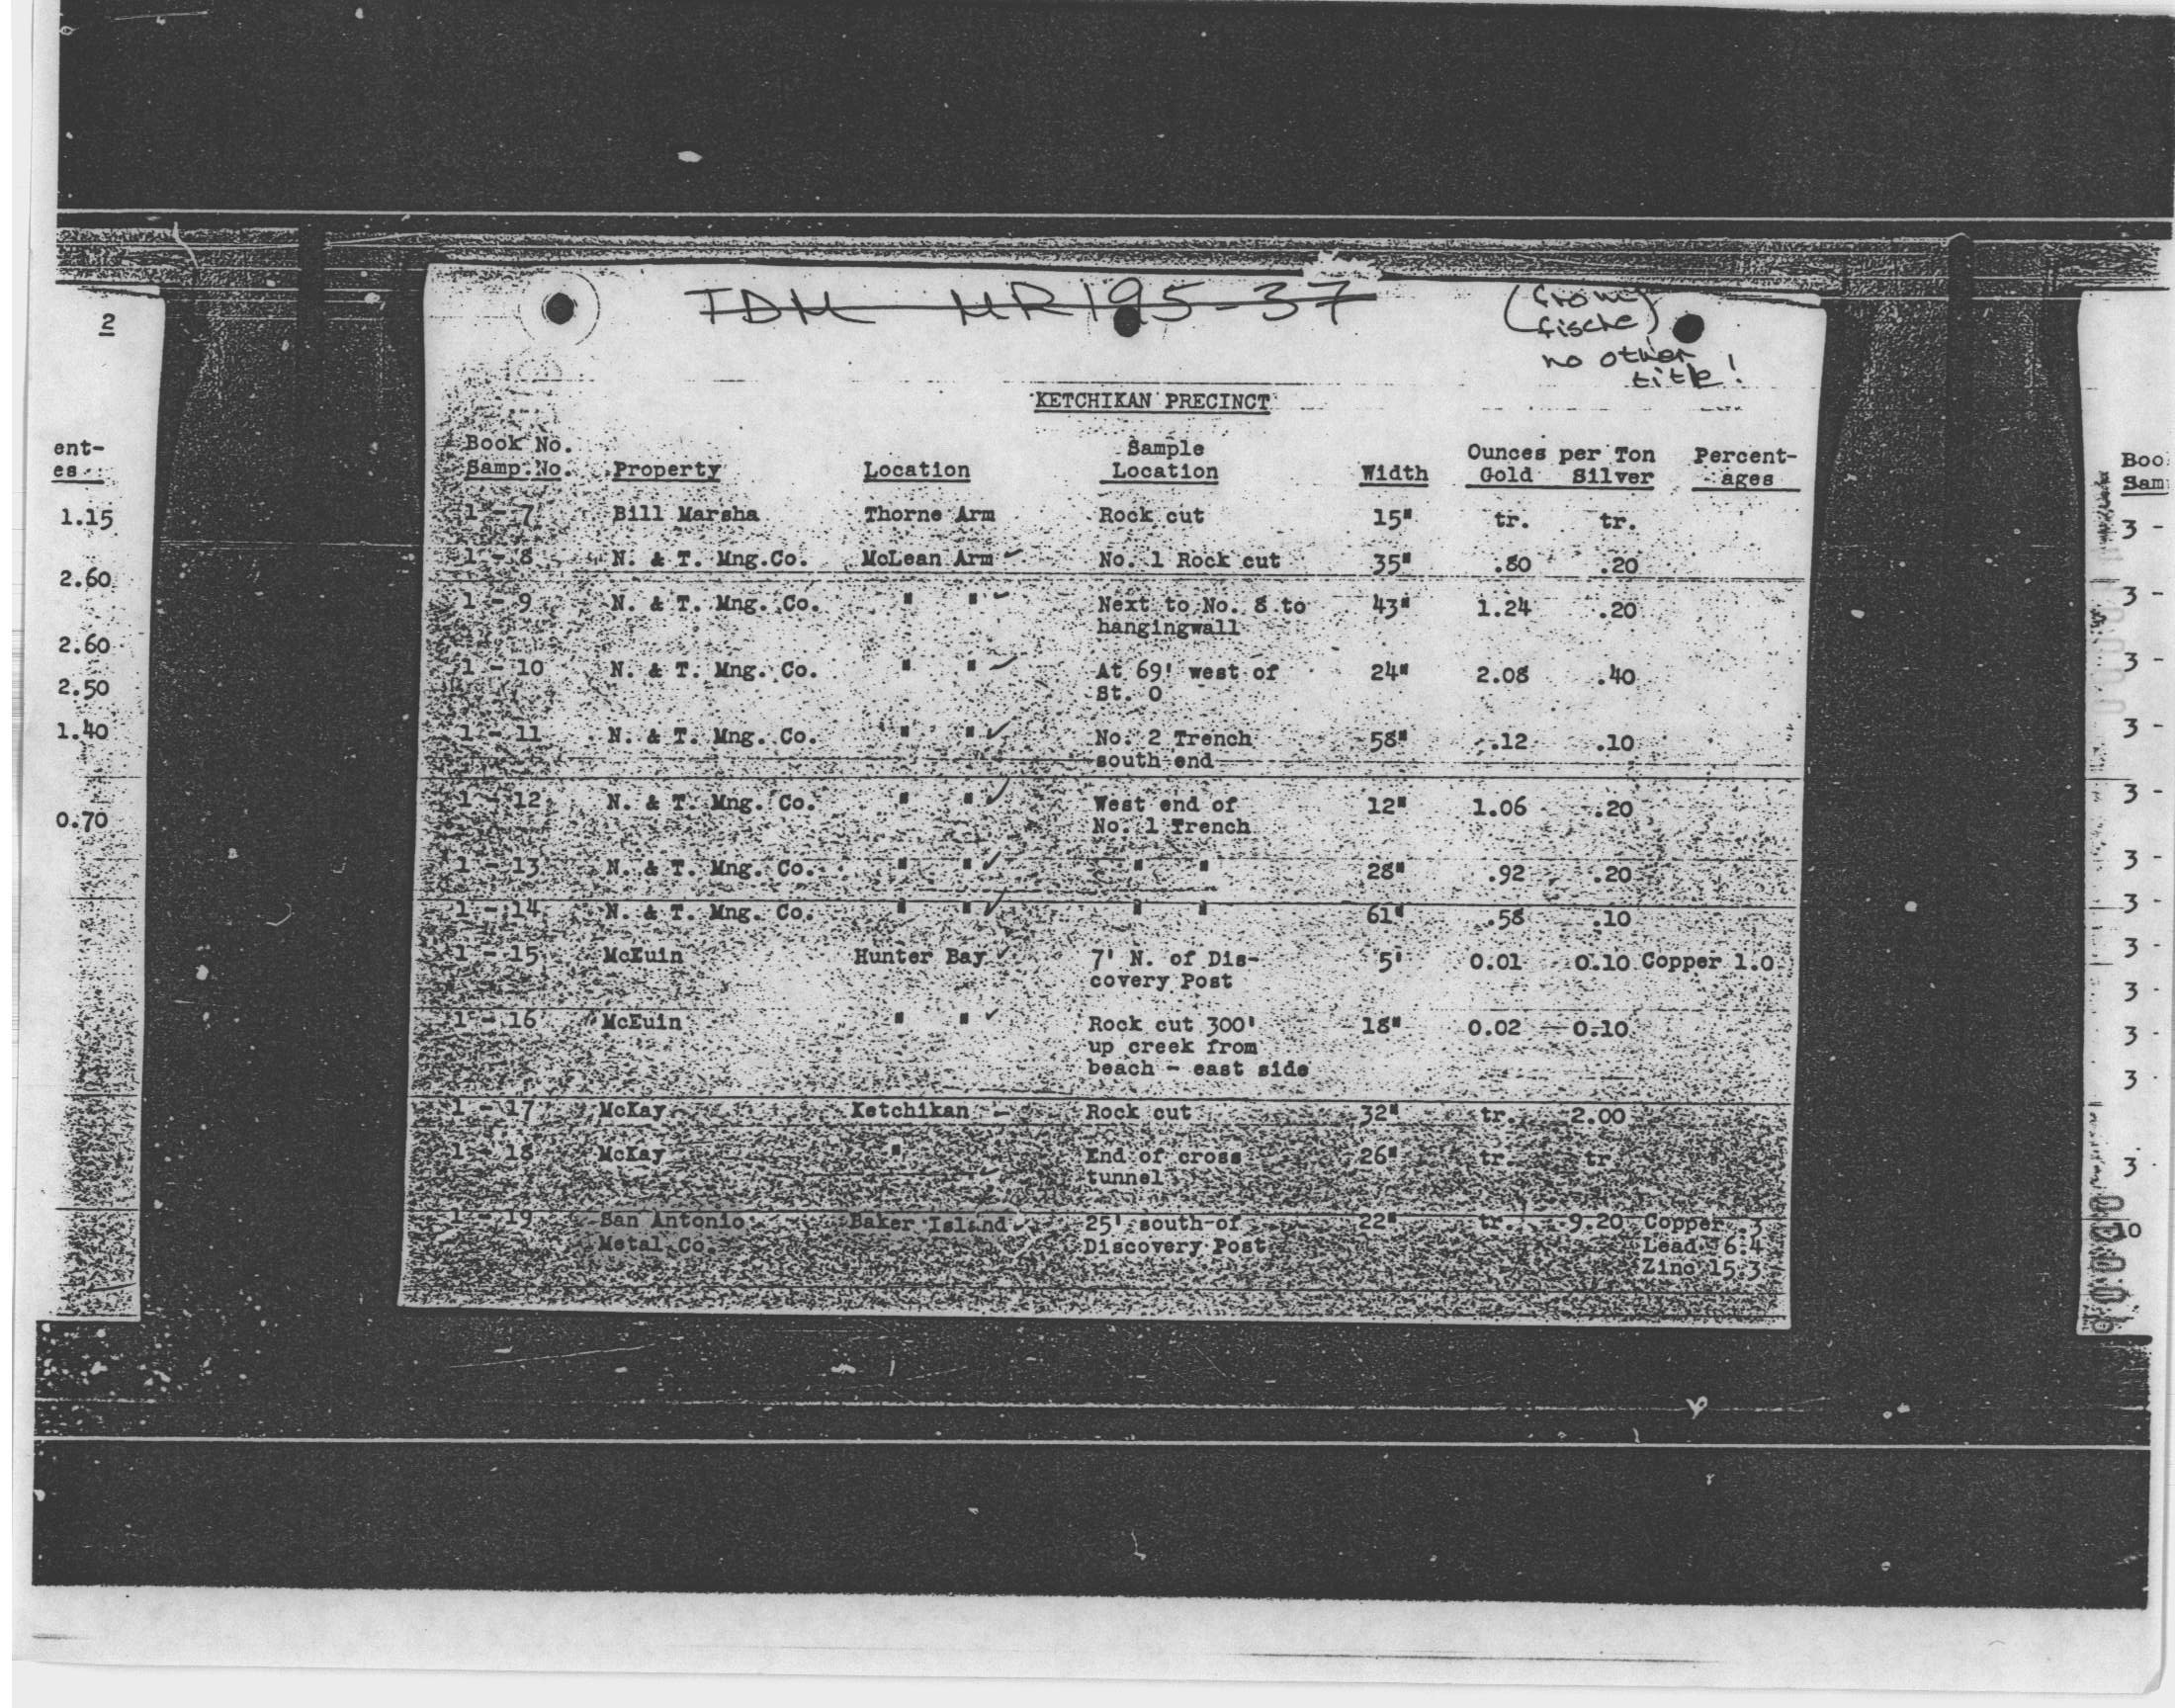 TDM MR195-37
(from fische)
no other title!
2
ent-
es
1.15
2.60
2.60
2.50
1.40
0.70
KETCHIKAN PRECINCT
Book No. Sample Ounces per Ton Percent-
Samp. No. Property Location Location Width Gold Silver ages
1 - 7 Bill Marsha Thorne Arm Rock cut 15" tr. tr.
1 - 8 N. & T. Mng. Co. McLean Arm ✓ No. 1 Rock cut 35" .80 .20
1 - 9 N. & T. Mng. Co. " " ✓ Next to No. 8 to 43" 1.24 .20
hangingwall
1 - 10 N. & T. Mng. Co. " " ✓ At 69' west of 24" 2.08 .40
St. 0
1 - 11 N. & T. Mng. Co. " " ✓ No. 2 Trench 58" .12 .10
south end
1 - 12 N. & T. Mng. Co. " " ✓ West end of 12" 1.06 .20
No. 1 Trench
1 - 13 N. & T. Mng. Co. " " ✓ " " 28" .92 .20
1 - 14 N. & T. Mng. Co. " " ✓ " " 61" .58 .10
1 - 15 McEuin Hunter Bay ✓ 7' N. of Dis- 5' 0.01 0.10 Copper 1.0
covery Post
1 - 16 McEuin " " ✓ Rock cut 300' 18" 0.02 0.10
up creek from
beach - east side
1 - 17 McKay Ketchikan ✓ Rock cut 32" tr. 2.00
1 - 18 McKay " ✓ End of cross 26" tr. tr.
tunnel
1 - 19 San Antonio Baker Island ✓ 25' south of 22" tr. 9.20 Copper .3
Metal Co. Discovery Post Lead 6.4
Zinc 15.3
Boo
Sam
3 -
3 -
3 -
3 -
3 -
3 -
3 -
3 -
3 -
3 -
3 -
3 -
10